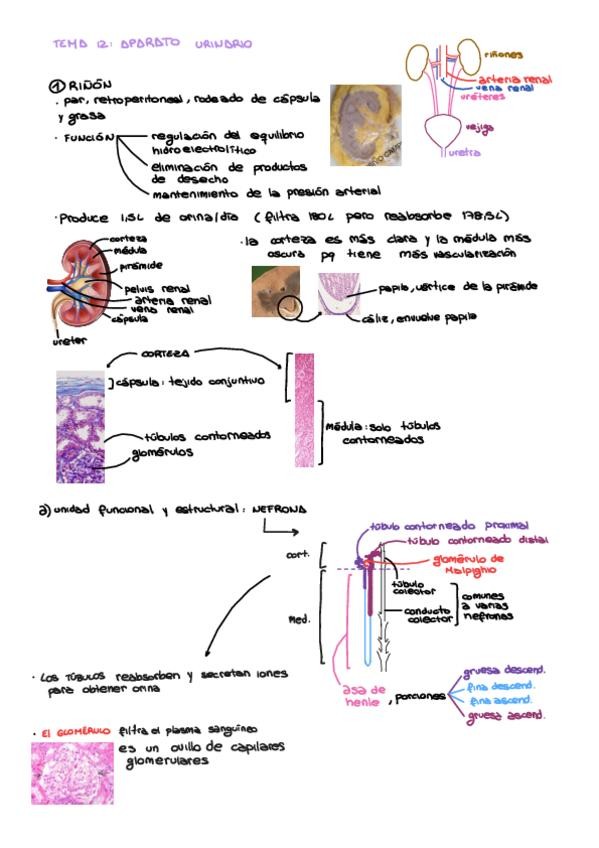 TEMA 12: APARATO URINARIO
riñones
arteria renal
vena renal
uréteres
vejiga
uretra
① RIÑÓN
· par, retroperitoneal, rodeado de cápsula
y grasa
· FUNCIÓN
regulación del equilibrio
hidroelectrolítico
eliminación de productos
de desecho
mantenimiento de la presión arterial
· Produce 1,5L de orina/día (filtra 180L pero reabsorbe 178,5L)
corteza
médula
pirámide
pelvis renal
arteria renal
vena renal
cápsula
ureter
· la corteza es más clara y la médula más
oscura pq tiene más vascularización
papila, vértice de la pirámide
cáliz, envuelve papila
CORTEZA
cápsula: tejido conjuntivo
túbulos contorneados
glomérulos
Médula: solo túbulos
contorneados
a) unidad funcional y estructural: NEFRONA
túbulo contorneado proximal
túbulo contorneado distal
glomérulo de
Malpighio
cort.
túbulo
colector
conducto
colector
comunes
a varias
nefronas
Med.
asa de
henle, porciones
gruesa descend.
fina descend.
fina ascend.
gruesa ascend.
· LOS TÚBULOS reabsorben y secretan iones
para obtener orina
· El GLOMÉRULO filtra el plasma sanguíneo
es un ovillo de capilares
glomerulares